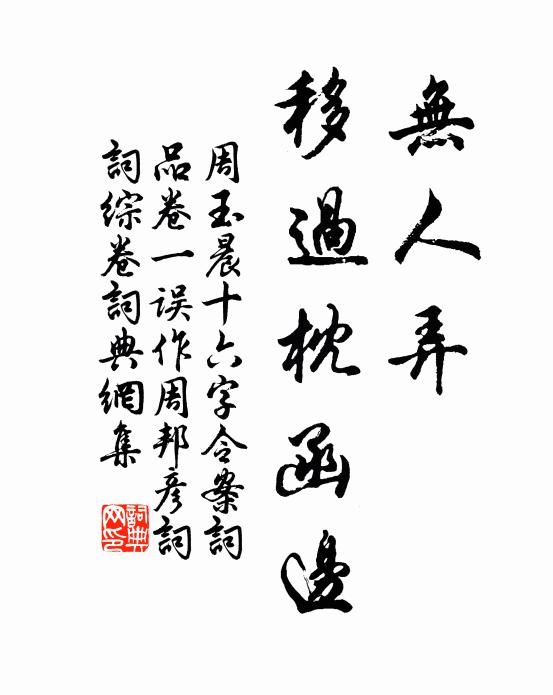 無人弄
移過枕函邊
周玉晨十六字令案詞
品卷一误作周邦彦詞
詞综卷詞典網集
詞典
网印